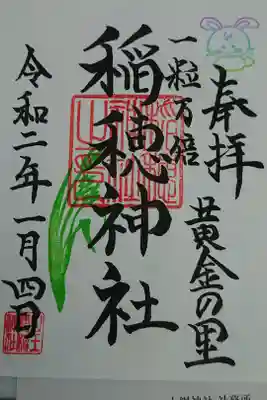 奉拝
黄金の里
一粒万倍
稲穂神社
令和二年一月四日